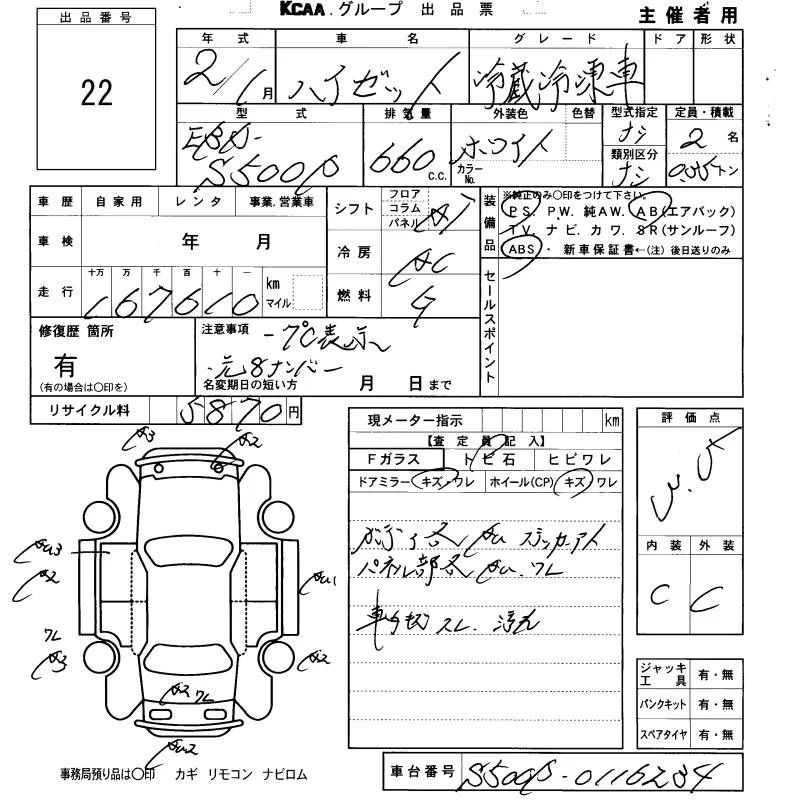 KCAA.グループ 出品票
主催者用
出品番号
22
年式 車名 グレード ドア 形状
2/1月 ハイゼット 冷蔵冷凍車
型式 排気量 外装色 色替 型式指定 定員・積載
EBD-
S500P 660c.c. ホワイト ナシ 2名
カラーNo. 類別区分 ナシ 0.35トン
車歴 自家用 レンタ 事業.営業車
車検 年 月
十万 万 千 百 十 一
走行 167610 km マイル
シフト フロア コラム パネル AT
冷房 AC
燃料 G
装備品
※純正のみ○印をつけて下さい。
P S. P.W. 純AW. AB(エアバック)
T V. ナビ. カワ. SR(サンルーフ)
ABS・ 新車保証書←(注) 後日送りのみ
セールスポイント
修復歴 箇所
有
(有の場合は○印を)
注意事項 -7℃表示
元8ナンバー
名変期日の短い方 月 日まで
リサイクル料 5870円
現メーター指示 km
【査定員記入】
Fガラス トビ石 ヒビワレ
ドアミラー キズ・ワレ ホイール(CP) キズ・ワレ
ボディ各
パネル部各 ワレ
車内 スレ. 汚れ
評価点
内装 外装
C C
A3
A2
A2
ワレ
A3
A2
ワレ
ジャッキ工具 有・無
パンクキット 有・無
スペアタイヤ 有・無
事務局預り品は○印 カギ リモコン ナビロム
車台番号 S500P-0116234